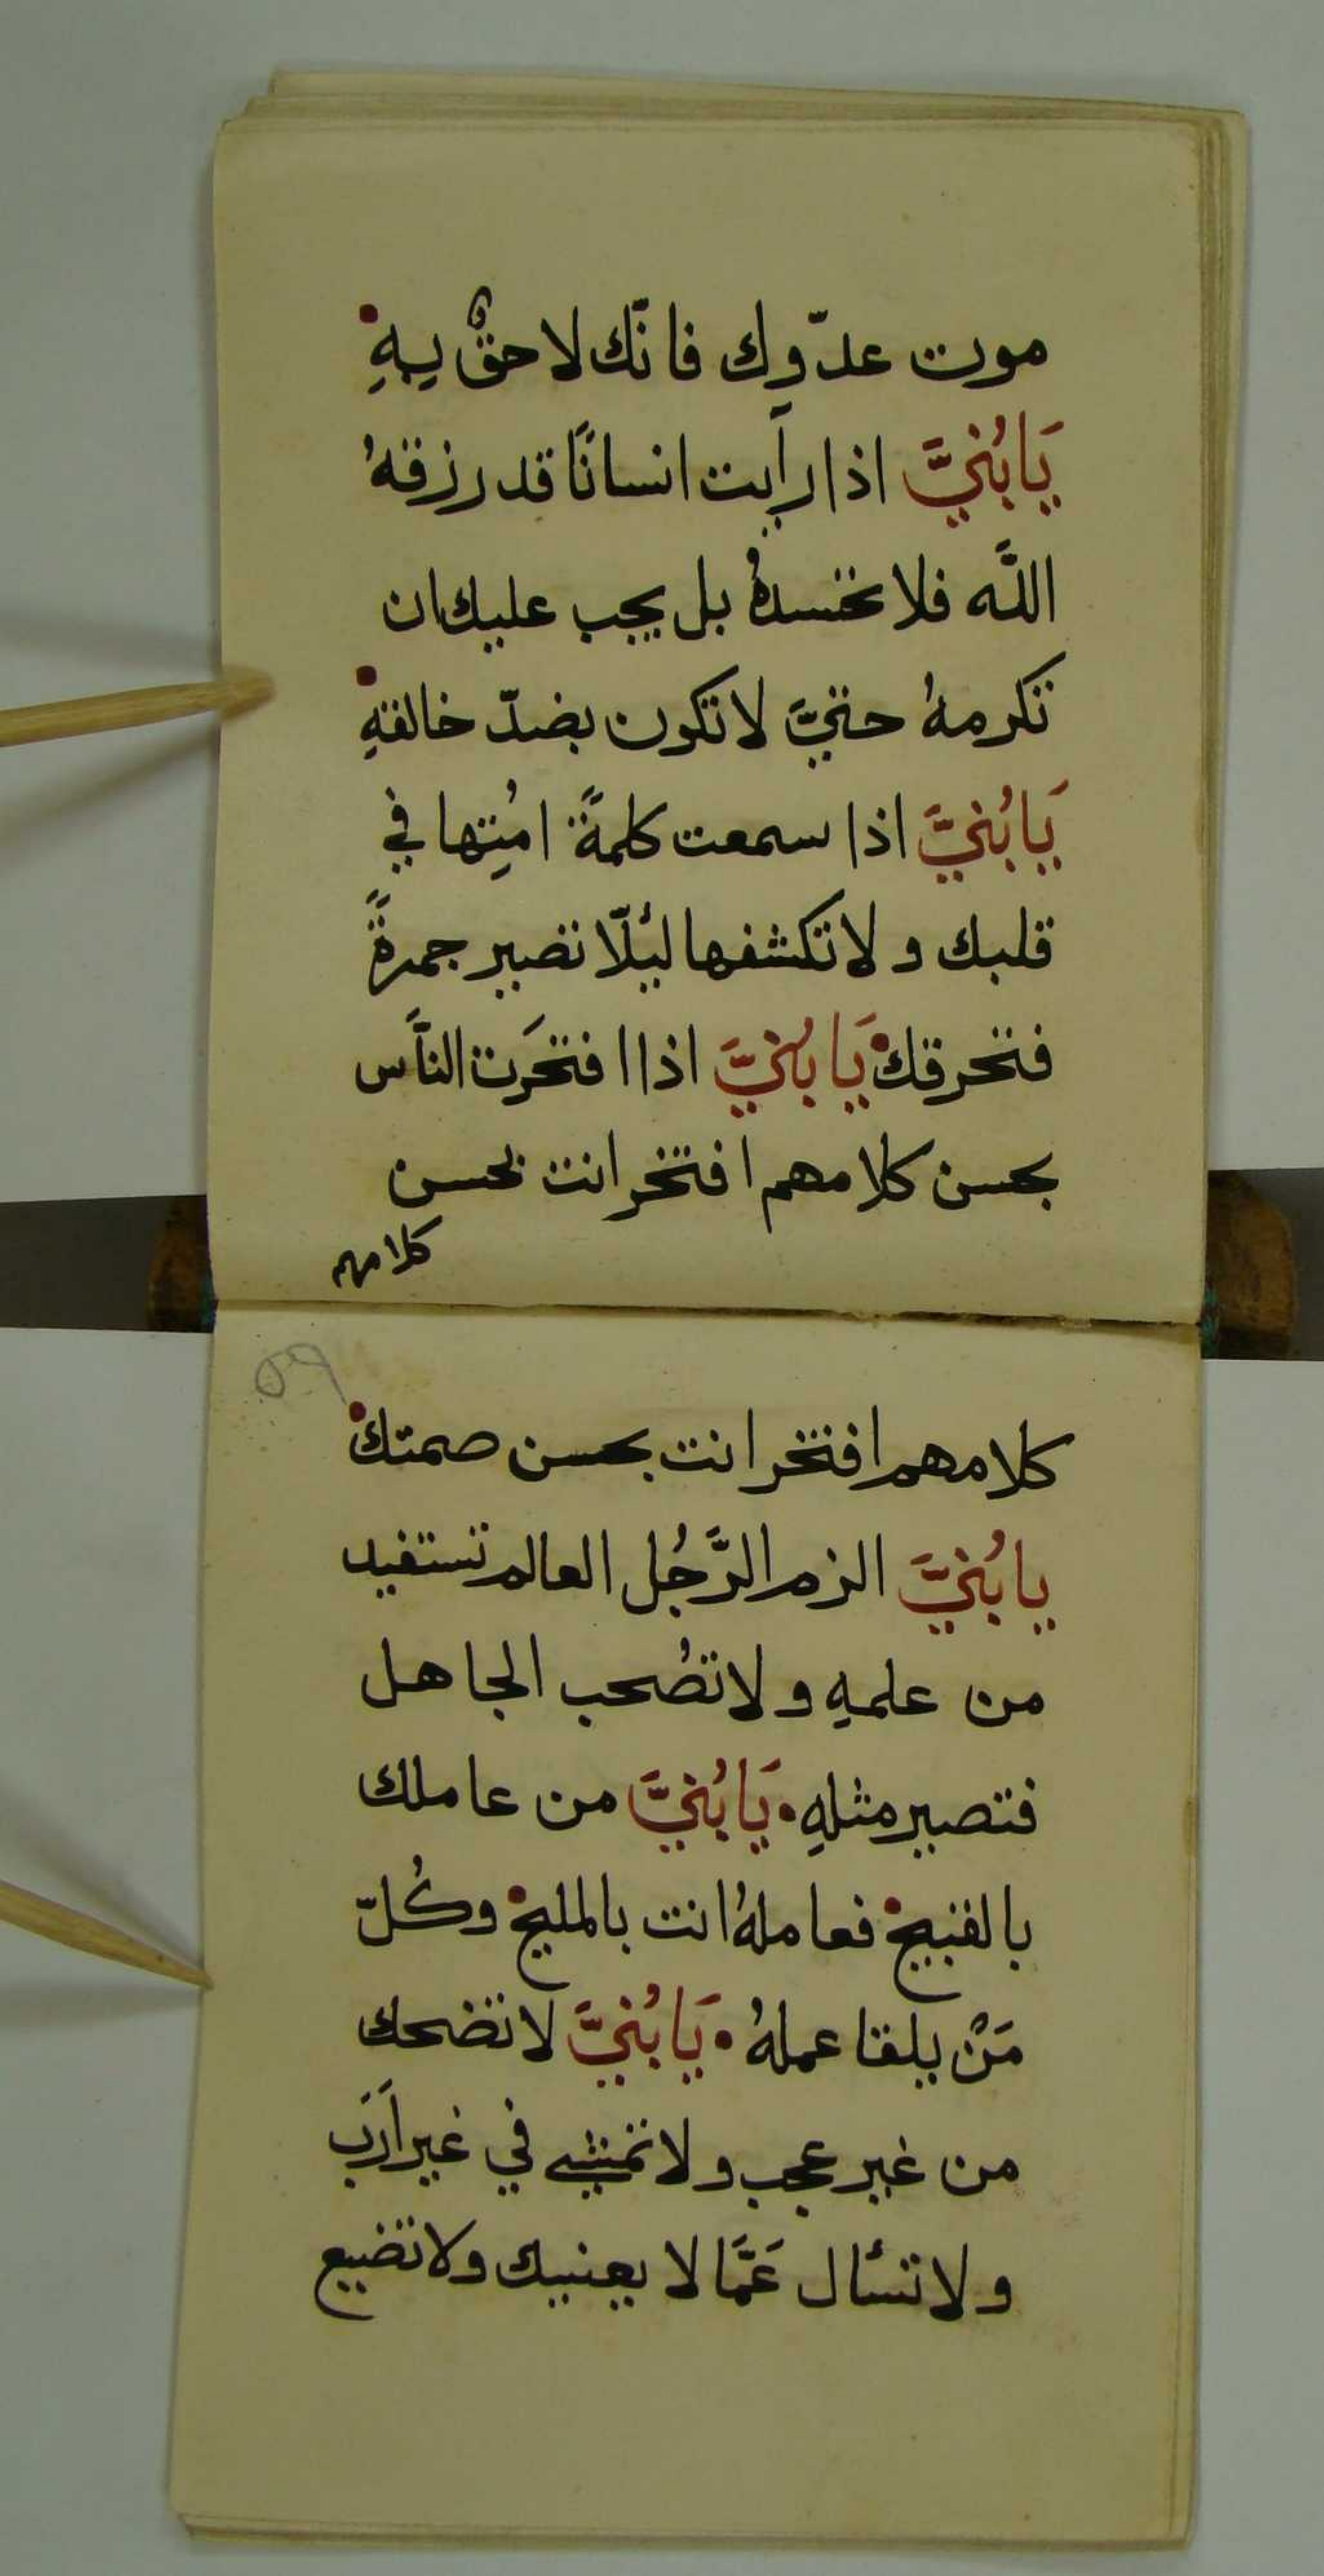 موت عدّوك فانّك لاحقٌ بهِ
يَابُنيَّ اذا رأيت انسانًا قد رزقهُ
اللَّه فلا تحسدهُ بل يجب عليك ان
تكرمهُ حتيَّ لا تكون بضدّ خالقهِ
يَابُنيَّ اذا سمعت كلمةً امُتِها في
قلبك ولا تكشفها ليُلّا تصير جمرةً
فتحرقك يَابُنيَّ اذا افتخَرت النَّاس
بحسن كلامهم افتخر انت بحسن
كلامهم
٥٩
كلامهم افتخر انت بحسن صمتك
يابُنيَّ الزم الرَّجُل العالم تستفيد
من علمهِ ولا تصُحب الجاهل
فتصير مثلهِ يَابُنيَّ من عاملك
بالقبيح فعاملهُ انت بالمليح وكُلّ
مَنْ يلقا عملهُ يَابُنيَّ لا تضحك
من غير عجب ولا تمشي في غير أَرَب
ولا تسأل عَمَّا لا يعنيك ولا تضيع